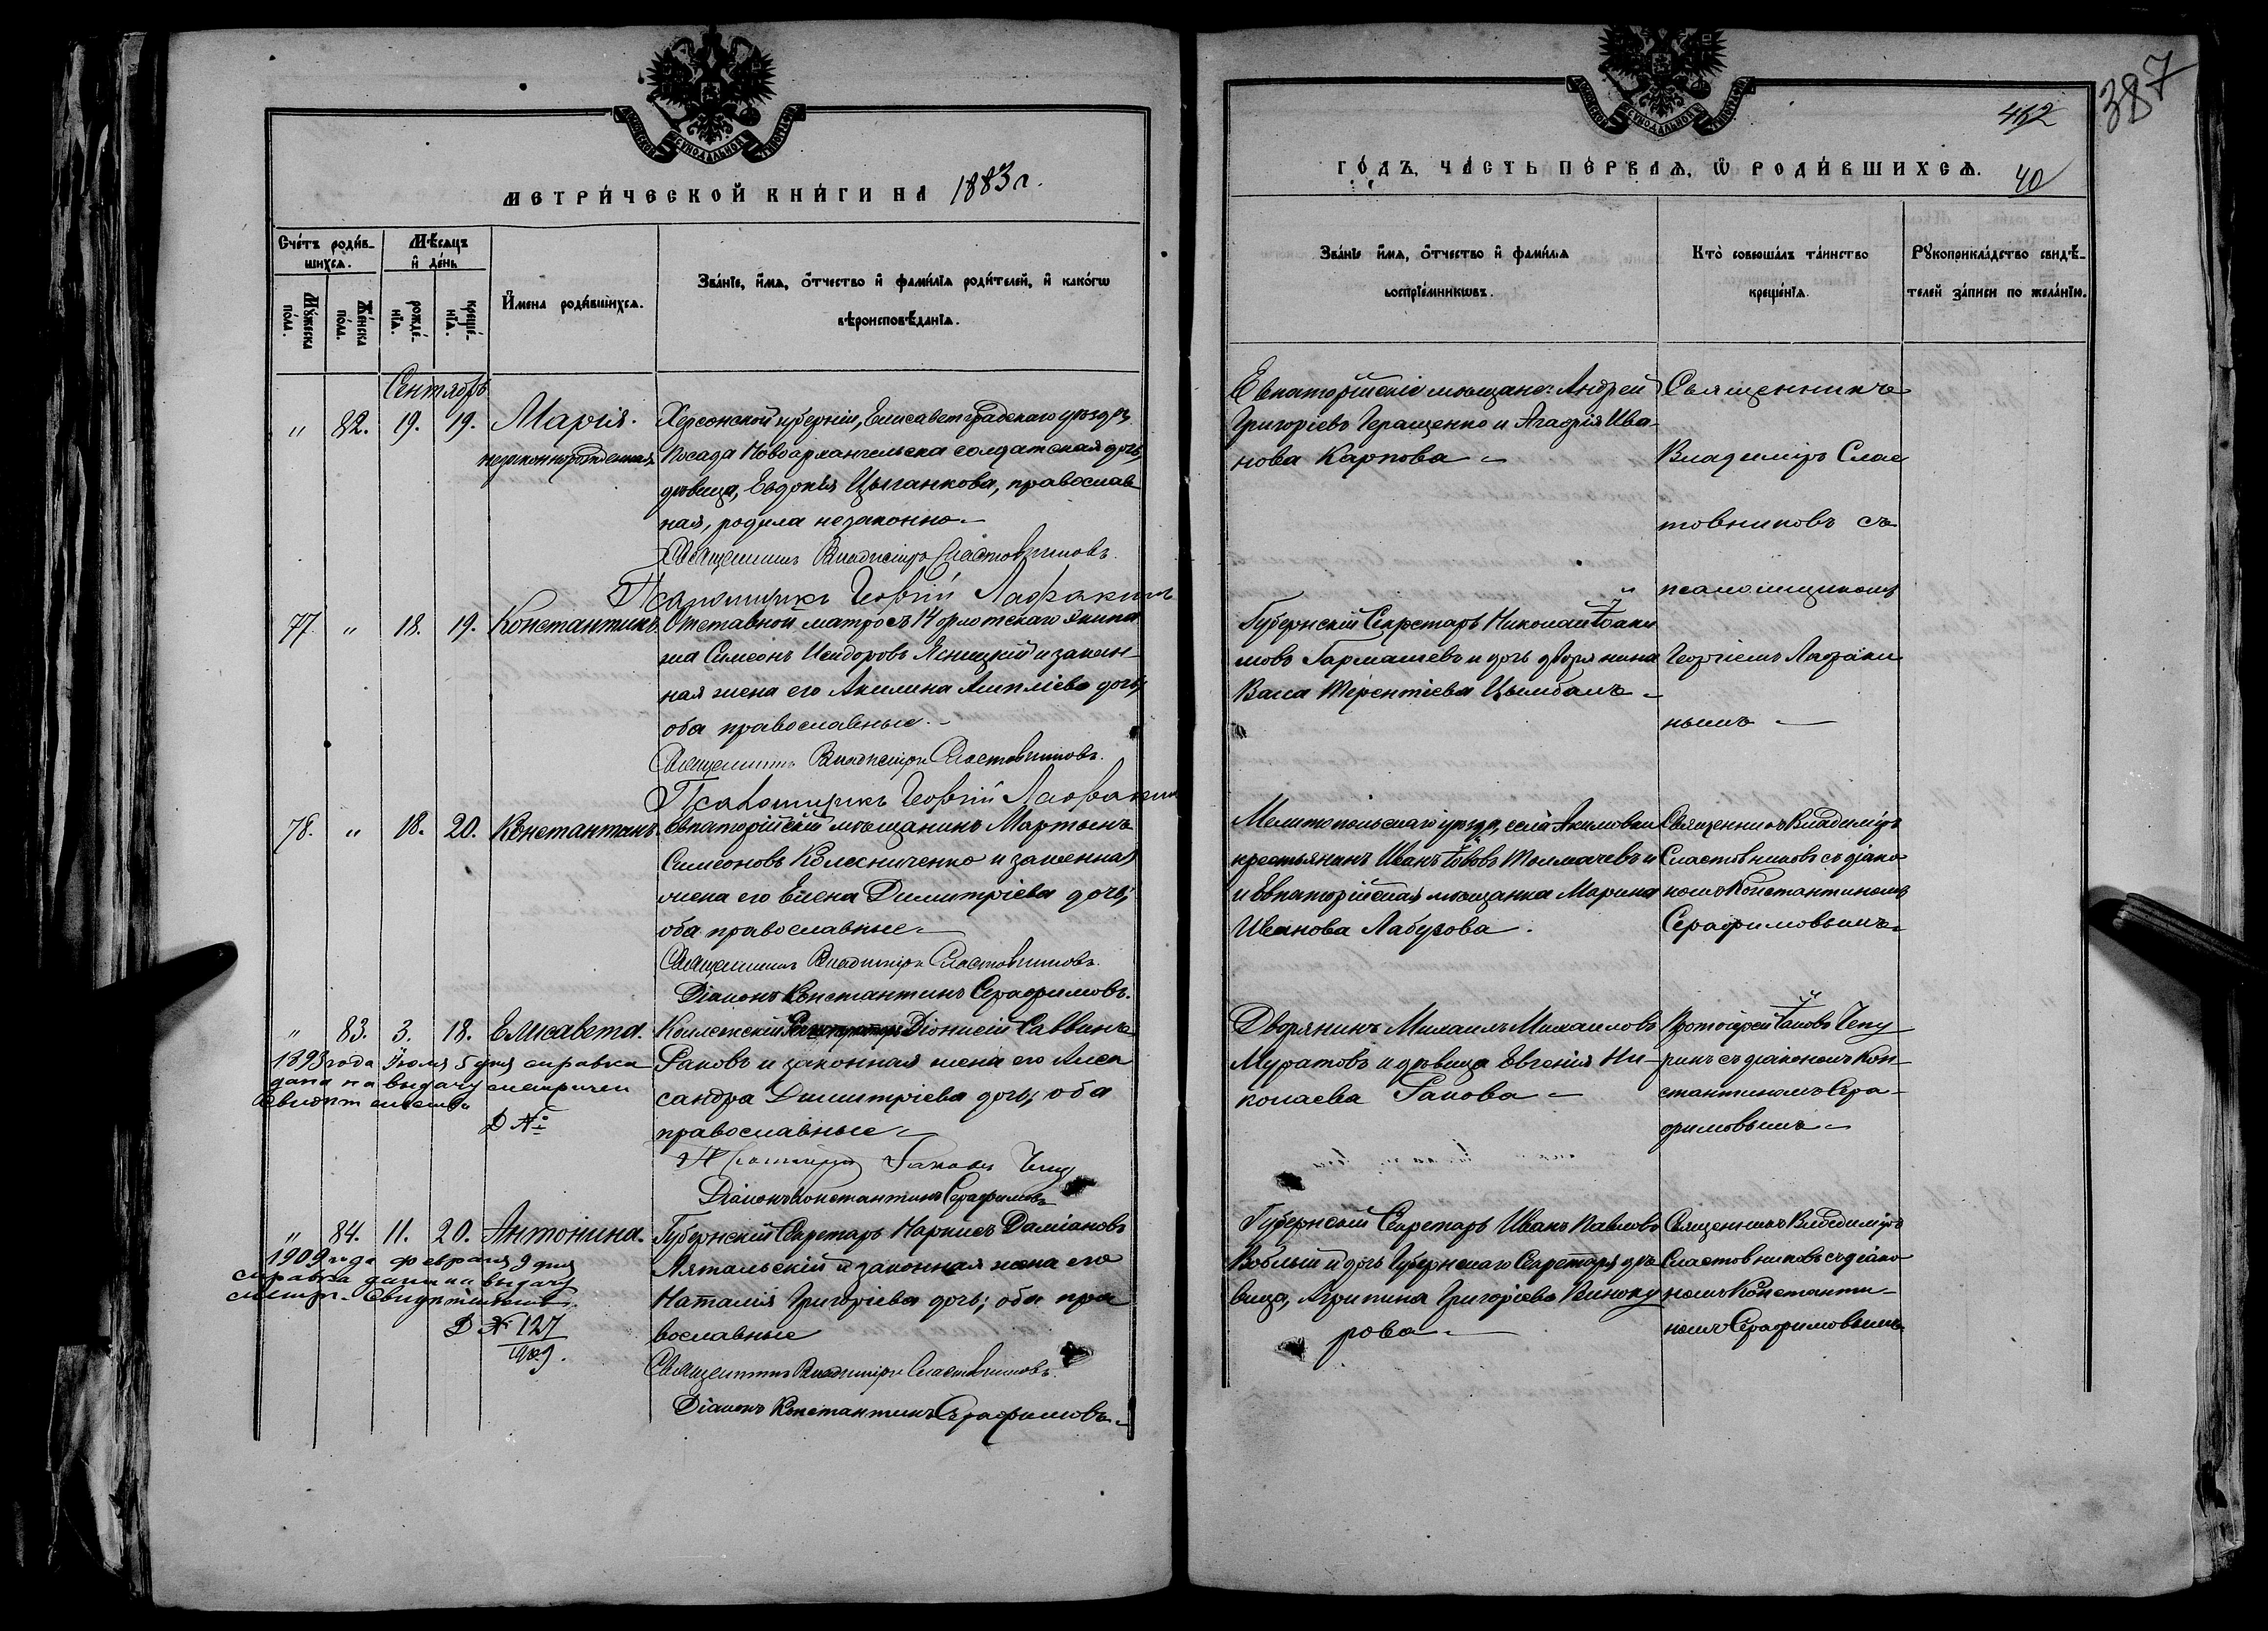 МЕТРИ́ЧЕСКОЙ КНИ́ГИ НА 1883 г.
Сче́тъ роди́в-
шихсѧ.
Мѣсѧцъ
и҆ де́нь
Мꙋ́жеска
по́ла.
Же́нска
по́ла.
рожде́-
нїѧ.
креще́-
нїѧ.
И҆мена роди́вшихсѧ.
Зва́нїе, и҆мѧ, ѻ҆́тчество и҆ фами́лїѧ роди́телей, и҆ како́гѡ
вѣроисповѣ́данїѧ.
Сентябрь
" 82. 19. 19. Марія.
незаконнорожденная
Херсонской губерніи, Елисаветградскаго уѣзда,
Посада Новоархангельска солдатская дочь,
дѣвица, Евдокія Цыганкова, православ
ная, родила незаконно.
Священникъ Владиміръ Сластовниковъ.
Псаломщикъ Георгій Лафакинъ
77. " 18. 19. Константинъ.
Отставной матросъ 14 флотскаго Экипа
жа Симеонъ Исидоровъ Ясницкій и закон-
ная жена его Акилина дочь,
оба православные.
Священникъ Владиміръ Сластовниковъ.
Псаломщикъ Георгій Лафакинъ
78. " 18. 20. Константинъ.
Евпаторійскій мѣщанинъ Мартынъ
Симеоновъ Колесниченко и законная
жена его Елена Димитріева дочь,
оба православные
Священникъ Владиміръ Сластовниковъ.
Діаконъ Константинъ Серафимовъ.
" 83. 3. 18. Елисавета.
1893 года Іюля 5 дня справка
дана на выдачу метричес
свидѣт
Д №
Коллежскій Діонисій Саввинъ
Гаковъ и законная жена его Алек
сандра Димитріева дочь, оба
православные
Протоіерей Іаковъ Чепу
Діаконъ Константинъ Серафимовъ
" 84. 11. 20. Антонина.
1909 года февраля 9 дня
справка дана на выдачу
метр. свидѣтельства
Д № 127
1909.
Губернскій Секретарь Наркисъ Даміановъ
Лятальскій и законная жена его
Наталія Григоріева дочь; оба пра
вославные
Священникъ Владиміръ Сластовниковъ.
Діаконъ Константинъ Серафимовъ.
387
482
ГО́ДЪ, ЧА́СТЬ ПЕ́РВАѦ, Ѡ҆ РОДИ́ВШИХСѦ. 40
Зва́нїе и҆мѧ, ѻ҆́тчество и҆ фами́лїѧ
воспрїе́мникѡвъ.
Кто̀ соверша́лъ та́инство
креще́нїѧ.
Рꙋкоприкла́дство свидѣ́-
телей за́писи по жела́нїю.
Евпаторійскіе мѣщане: Андрей
Григоріевъ Геращенко и Агафія Ива-
нова Карпова
Священникъ
Владиміръ Слас
товниковъ съ
псаломщикомъ
Георгіемъ Лафаки
нымъ
Губернскій Секретарь Николай Іоаки
мовъ Гармашевъ и дочь дворянина
Васса Терентіева Цымбалъ
Мелитопольскаго уѣзда, села Акимовки
крестьянинъ Иванъ Толмачевъ и
и Евпаторійская мѣщанка Марина
Иванова Лабузова.
Священникъ Владиміръ
Сластовниковъ съ діако
номъ Константиномъ
Серафимовымъ
Дворянинъ Михаилъ Михаиловъ
Муратовъ и дѣвица Евгенія Ни-
колаева Гакова
Протоіерей Іаковъ Чепу
ринъ съ діакономъ Кон-
стантиномъ Сера-
фимовымъ
Губернскій Секретарь Иванъ Павловъ
Воблый и дочь Губернскаго Секретаря дѣ
вица, Агрипина Григоріева Виноку
рова.
Священникъ Владиміръ
Сластовниковъ съ діако
номъ Константи-
номъ Серафимовымъ